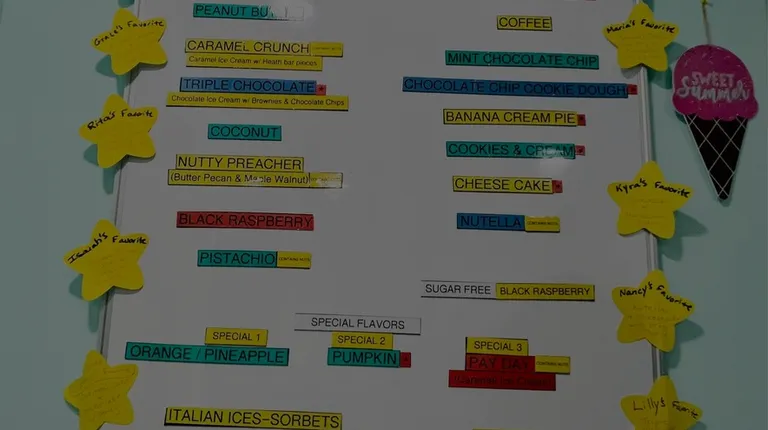 PEANUT
CARAMEL CRUNCH CONTAINS NUTS
Caramel Ice Cream w/ Heath bar pieces
TRIPLE CHOCOLATE
Chocolate Ice Cream w/ Brownies & Chocolate Chips
COCONUT
NUTTY PREACHER
(Butter Pecan & Maple Walnut)
BLACK RASPBERRY
PISTACHIO CONTAINS NUTS
COFFEE
MINT CHOCOLATE CHIP
CHOCOLATE CHIP COOKIE DOUGH
BANANA CREAM PIE
COOKIES & CREAM
CHEESE CAKE
NUTELLA CONTAINS NUTS
SUGAR FREE BLACK RASPBERRY
SPECIAL FLAVORS
SPECIAL 1
ORANGE / PINEAPPLE
SPECIAL 2
PUMPKIN
SPECIAL 3
PAY DAY CONTAINS NUTS
ITALIAN ICES-SORBETS
Grace's Favorite
Rita's Favorite
Isaiah's Favorite
Maria's Favorite
SWEET
Summer
Kyra's Favorite
Nancy's Favorite
Lilly's Favorite